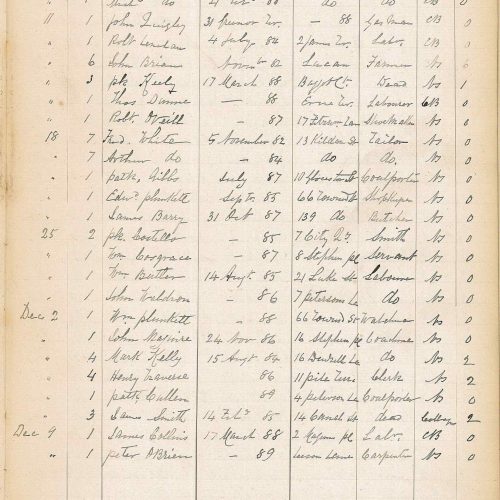 " 1 do 21 do
11 1 John Quigley 31 Tr. - 88 Gas Man CB 0
" 1 Robt 4 July 84 2 James Tr. Labr. CB 0
" 6 John Brien 82 Lucan Farmer No 6
" 3 pk. Kelly 17 March 88 Baggot Ct. Dead No 1
" 1 Thos Dunne - 88 Erne Tr. Labourer CB 0
" 1 Robt O'Neill - 87 17 Lan No 0
18 7 Fred. White 5 November 82 13 Kildare St Tailor No 0
" 7 Arthur do - 84 do do. No 0
" 1 patk. Gibbs July 87 10 Gloucester St Coalporter No 0
" 1 Edwd. plunkett Sept. 85 66 Townsd St Shopkeeper No 0
" 1 James Barry 31 Oct 87 139 do Butcher No 0
25 2 pk. Costello - 85 7 City Qy. Smith No 0
" 1 Wm Cosgrave - 87 8 Stephen pl Servant No 0
" 1 Wm Butler 14 Augt. 85 21 Luke St Labourer No 0
" 1 John Waldron - 86 7 petersons La do No 0
Dec 2 1 Wm plunkett - 88 66 Townsd St Watchman No 0
" 1 John Maguire 24 Nov 86 16 Stephen pl Coachman No 0
" 4 Mark Kelly 15 Augt 84 16 La do No 2
" 4 Henry Traverse 86 11 Clerk No 2
" 1 patk Cullen 89 4 peterson La Coalporter No 0
" 3 James Smith 14 Feb. 85 14 St dead College 2
Dec 9 1 James Collins 17 March 88 2 Magees pl Labr. CB 0
" 1 peter O'Brien - 89 Leeson Lane Carpenter No 0